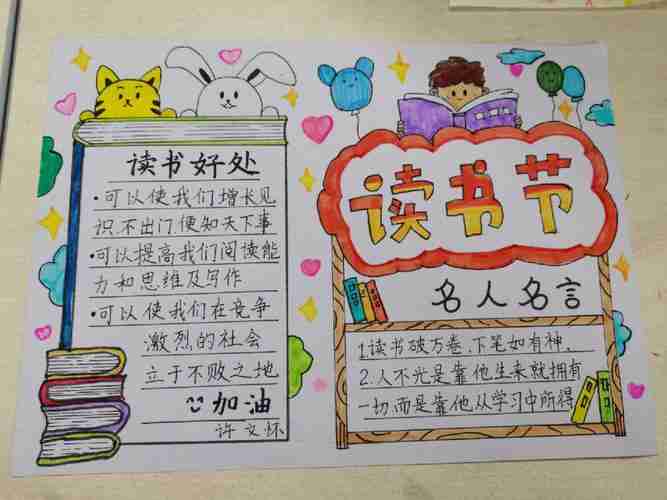 读书好处
·可以使我们增长见
识不出门便知天下事
·可以提高我们阅读能
力和思维及写作
·可以使我们在竞争
激烈的社会
立于不败之地
加油
许文怀
读书节
名人名言
1.读书破万卷,下笔如有神.
2.人不光是靠他生来就拥有
一切而是靠他从学习中所得